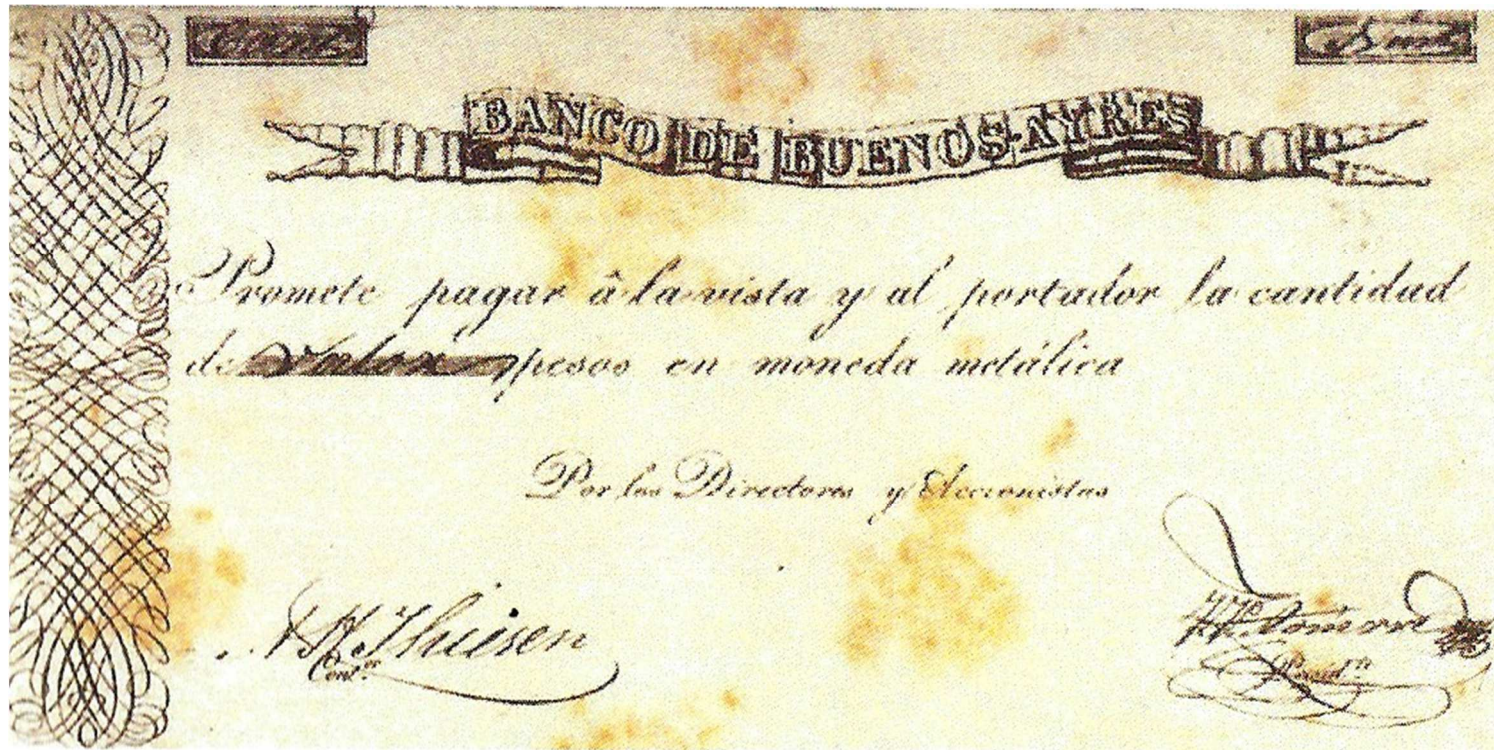 BANCO DE BUENOS-AYRES
Promete pagar â la vista y al portador la cantidad
de pesos en moneda metálica
Por los Directores y Accionistas
Thiisen